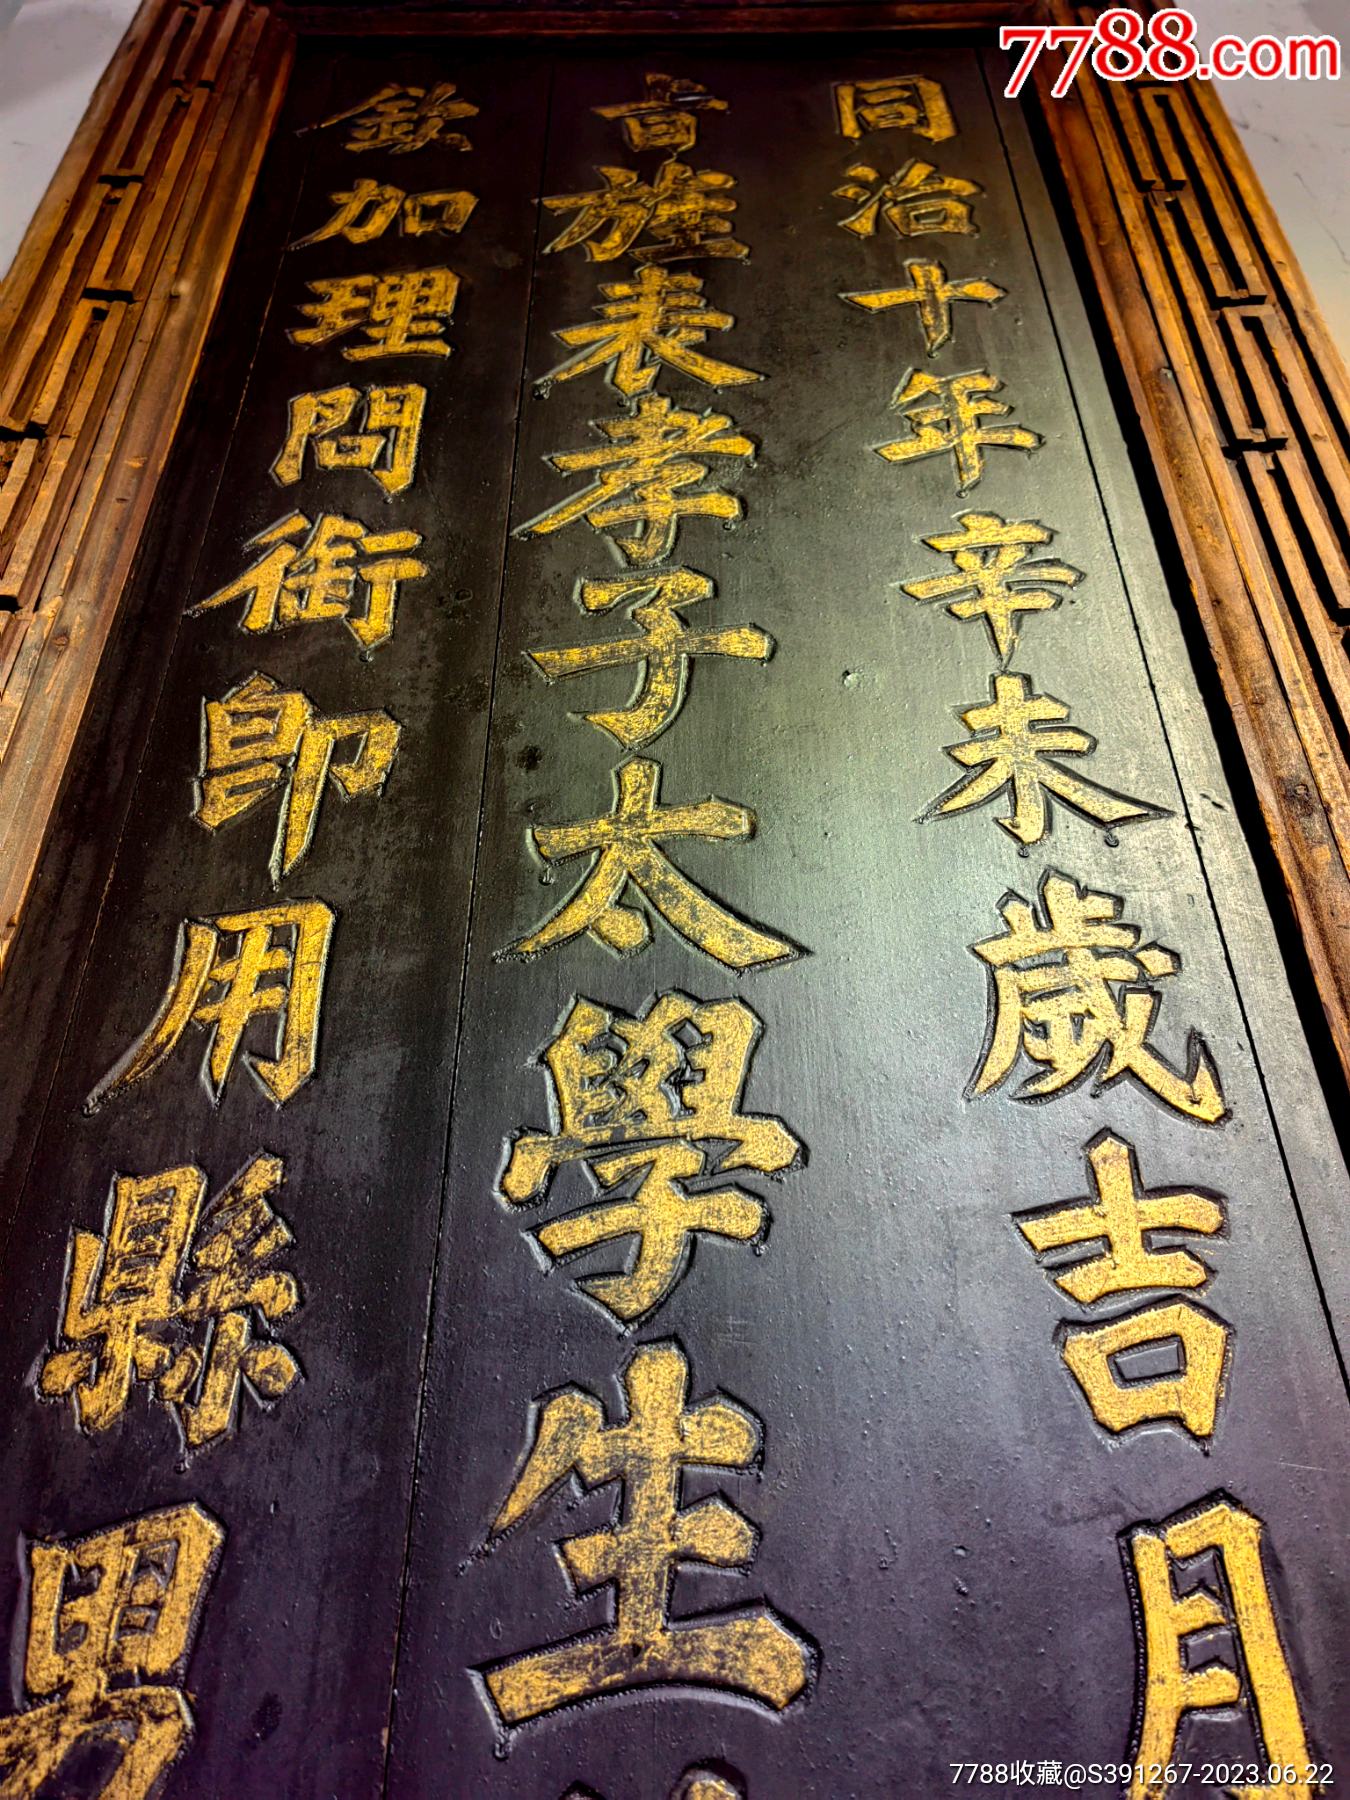 7788.com
同治十年辛未歲吉月
旨旌表孝子太學生
欽加理問銜即用縣男
7788收藏@S391267-2023.06.22